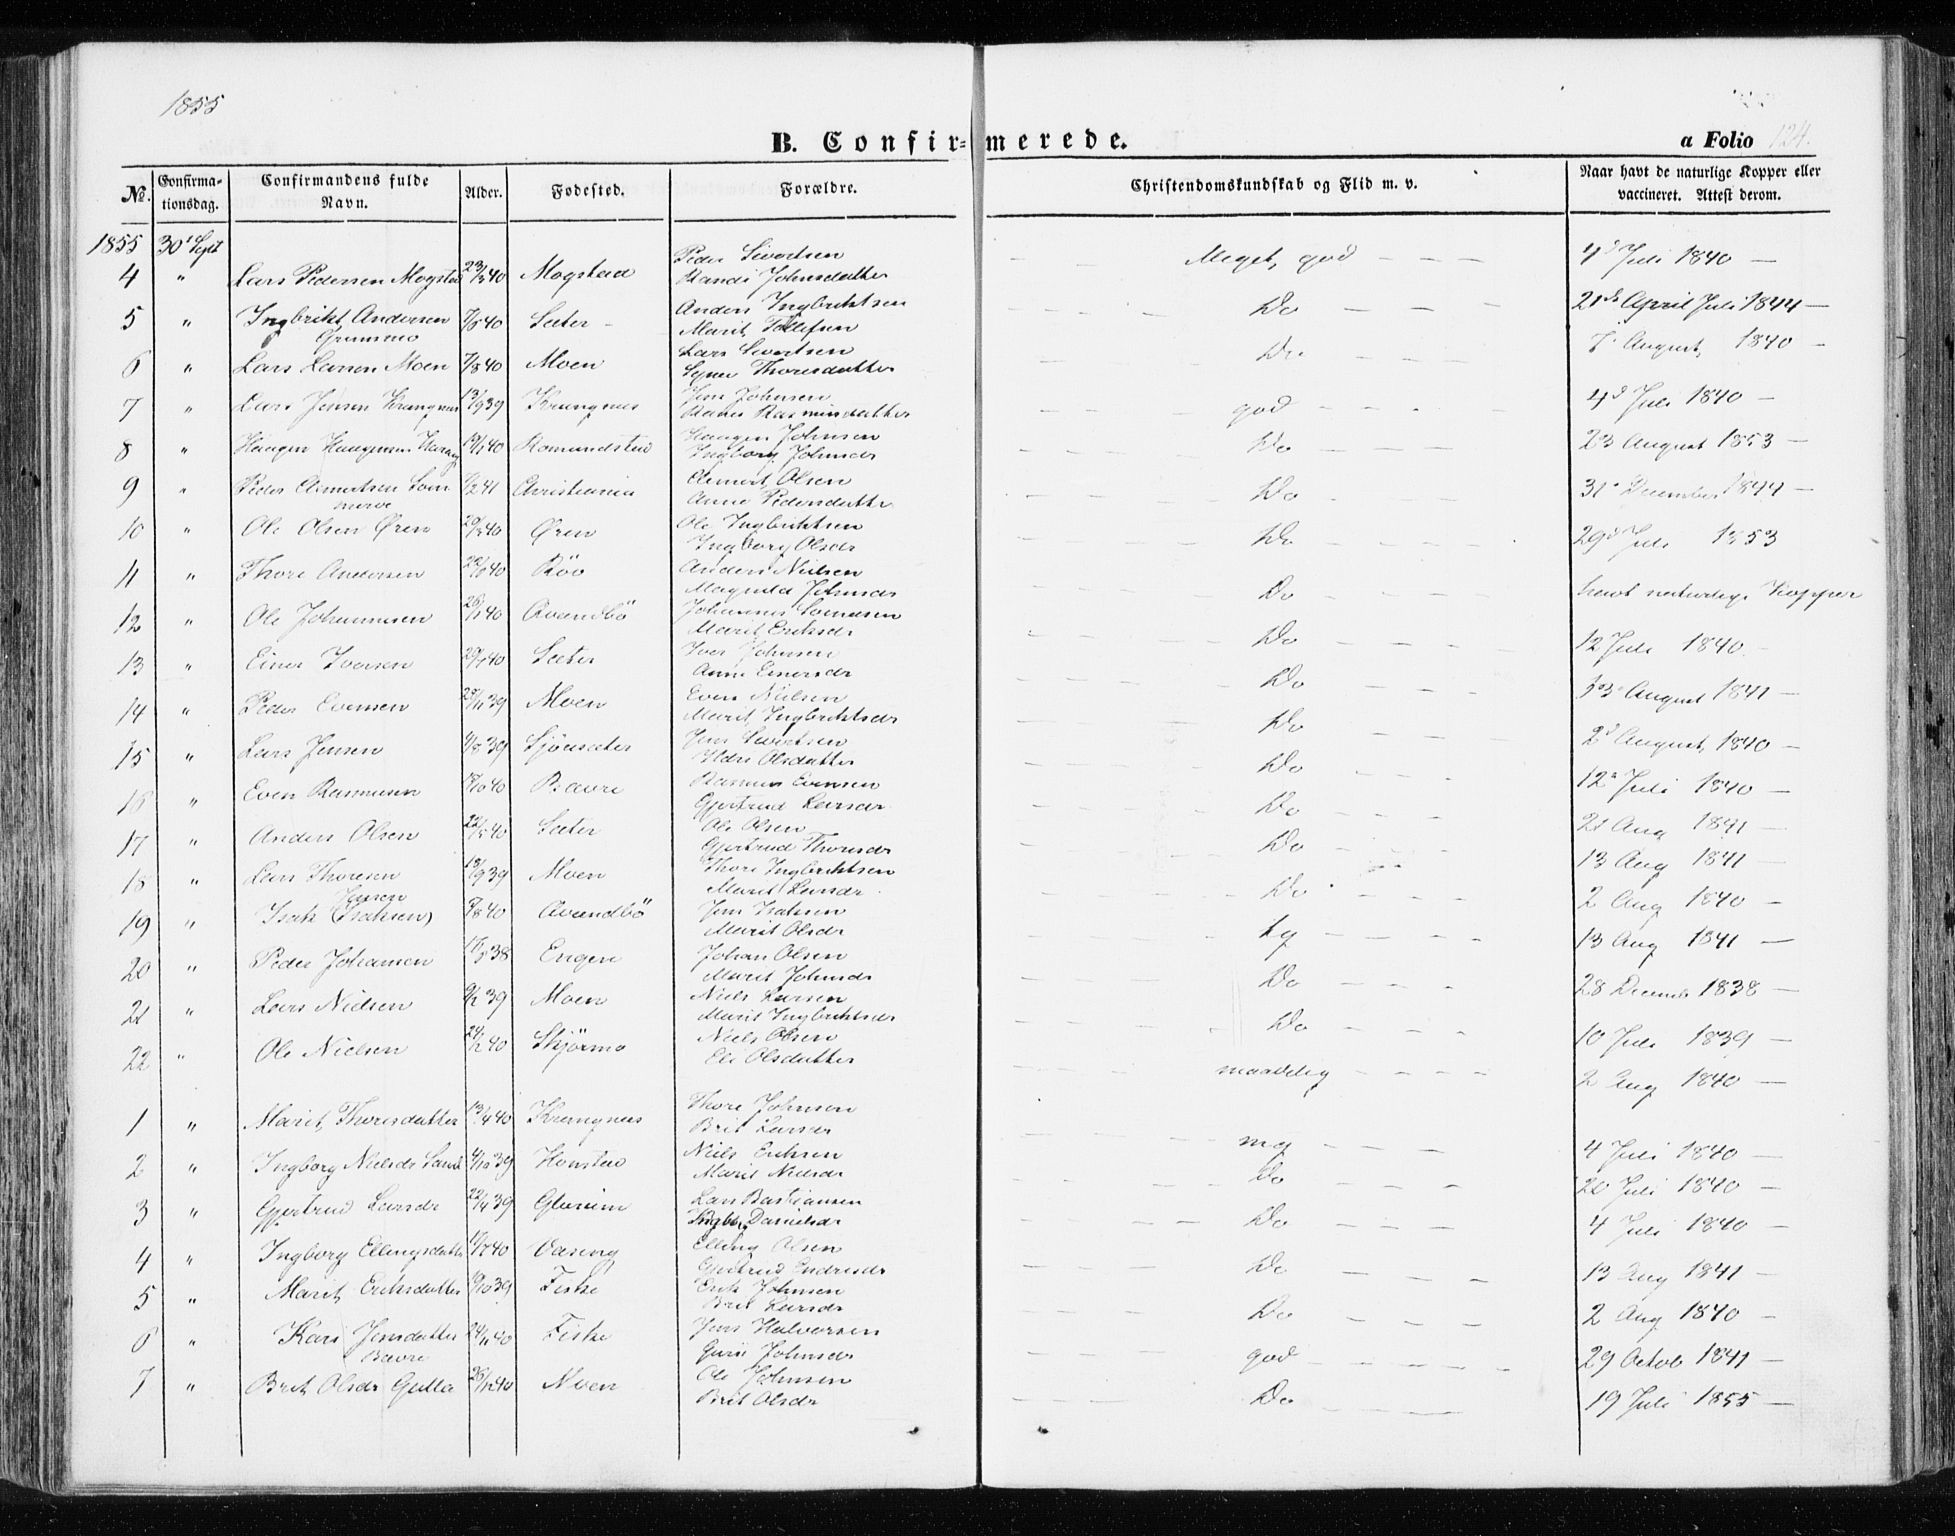 1855
B. Confir=merede.
a Folio 124.
No. Confirmationsdag. Confirmandens fulde Navn. Alder. Fødested. Forældre. Christendomskundskab og Flid m. v. Naar havt de naturlige Kopper eller vaccineret. Attest derom.
1855 30' Sept
4 " Lars Pedersen Mogstad 23/5 40 Mogstad Peder Sivertsen Randi Johnsdatter Meget god 4d Juli 1840
5 " Ingbrikt Andersen Grimsmo 7/5 40 Sæter Anders Ingbriktsen Marit Tollefsen Do 21de April Juli 1844
6 " Lars Larsen Moen 7/8 40 Moen Lars Sivertsen Thoresdatter Do 7. August 1840
7 " Lars Jensen Krangnes 13/9 39 Krangnes Jens Johnsen Rasmusdatter god 4d Juli 1840
8 " Haagen Haagensen 40 Romundstad Haagen Johnsen Ingborg Johnsdr Do 23 August 1853
9 " Peder 41 Christiania Olsen Anne Pedersdatter Do 31' December 1844
10 " Ole Olsen Øren 20/3 40 Øren Ole Ingbriktsen Ingborg Olsdr Do 29d Juli 1853
11 " Thore Andersen 40 Böe Anders Nielsen Magnild Johnsdr Do havt naturlige Kopper
12 " Ole Johannesen 40 Qvandbö Johannes Marit Eriksdr Do 12 Juli 1840
13 " Einer Iversen 40 Sæter Iver Johnsen Anne Einersdr Do August 1841
14 " Peder Evensen 39 Moen Even Nielsen Marit Ingbriktsdr Do 2d August 1840
15 " Lars Jensen 4/8 39 Sjöesæter Jens Sivertsen Olsdatter Do 12te Juli 1840
16 " Even Rasmusen 40 Bævre Rasmus Evensen Gjertrud Larsdr Do 21 Aug 1841
17 " Anders Olsen 22/5 40 Sæter Ole Olsen Gjertrud Thoresdr Do 13 Aug 1841
18 " Lars Thoresen 18/9 39 Moen Thore Ingbriktsen Marit Larsdr Do 2 Aug 1840
19 " Isak (Isaksen) Jensen 40 Qvandbö Jens Isaksen Marit Olsdr 13 Aug 1841
20 " Peder Johansen 38 Engen Johan Olsen Marit Johnsdr Do 28 Decemb 1838
21 " Lars Nielsen 39 Moen Niels Larsen Marit Ingbriktsdr Do 10 Juli 1839
22 " Ole Nielsen 24/2 40 Skjörmo Niels Olsen Eli Olsdatter maadelig 2 Aug 1840
1 " Marit Thoresdatter 13/4 40 Krangnes Thore Johnsen Brit Larsdr mg 4 Juli 1840
2 " Ingborg Nielsdr 4/10 39 Honstad Niels Eriksen Marit Nielsdr Do 20 Juli 1840
3 " Gjertrud Larsdr 22/4 39 Glærum Lars Bastiansen Ingbor Danielsdr Do 4 Juli 1840
4 " Ingborg Ellingsdatter 40 Vaseng Elling Olsen Gjertrud Endresdr Do 13 Aug 1841
5 " Marit Eriksdatter 39 Fiske Erik Johnsen Brit Larsdr Do 2 Aug 1840
6 " Kari Jensdatter Bævre 40 Fiske Jens Halvorsen Guri Johnsdr god 29 Octob 1841
7 " Brit Olsdr Gulla 40 Moen Ole Johnsen Brit Olsdr Do 19 Juli 1855